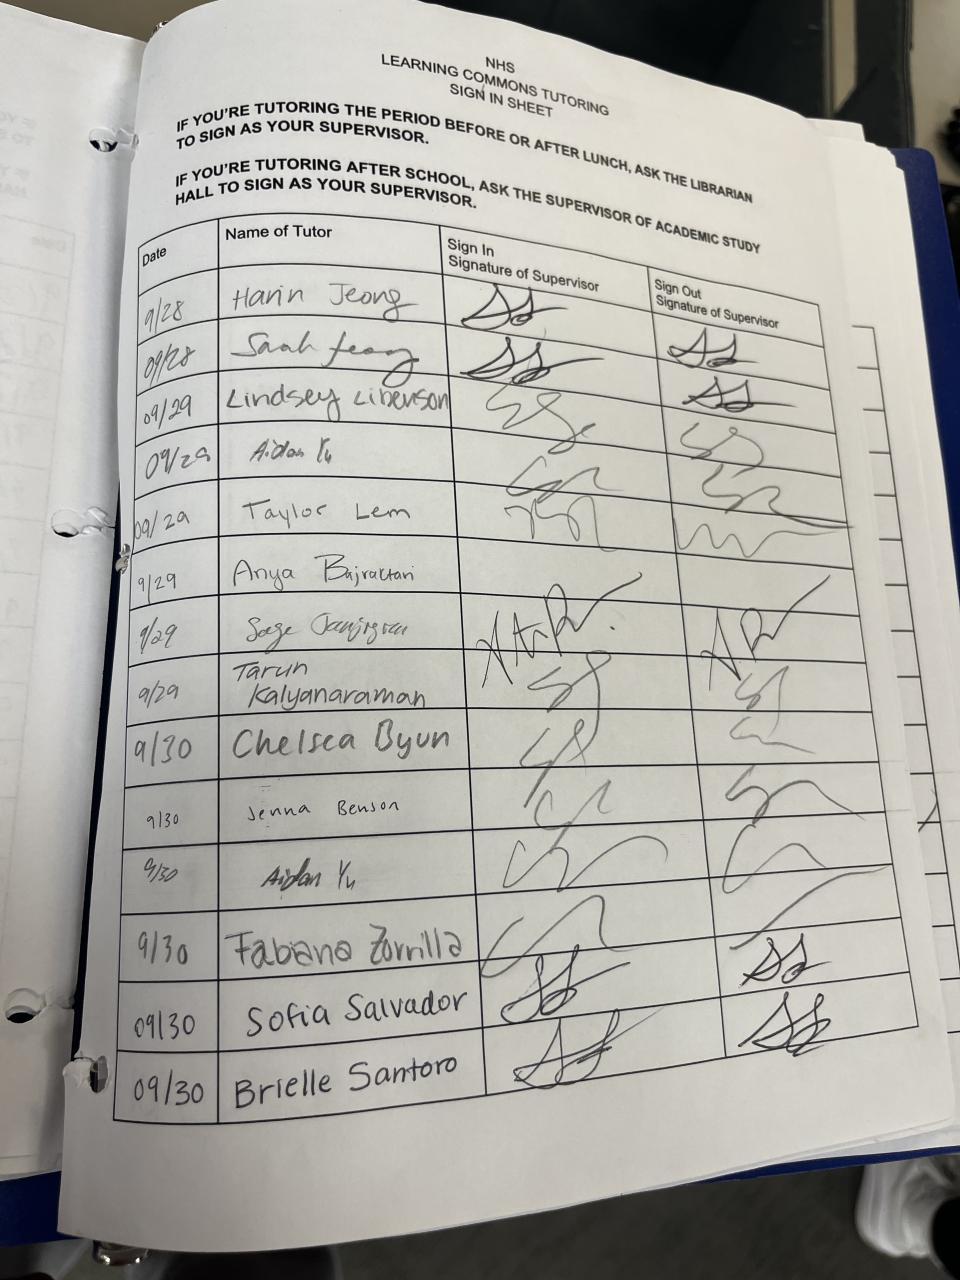 NHS
LEARNING COMMONS TUTORING
SIGN IN SHEET
IF YOU'RE TUTORING THE PERIOD BEFORE OR AFTER LUNCH, ASK THE LIBRARIAN
TO SIGN AS YOUR SUPERVISOR.
IF YOU'RE TUTORING AFTER SCHOOL, ASK THE SUPERVISOR OF ACADEMIC STUDY
HALL TO SIGN AS YOUR SUPERVISOR.
Date Name of Tutor Sign In Sign Out
Signature of Supervisor Signature of Supervisor
9/28 Harin Jeong
09/28 Sarah Jeong
09/29 Lindsey Liberson
09/29 Aidan Yu
09/29 Taylor Lem
9/29 Anya Bajraktari
9/29 Sage
9/29 Tarun
Kalyanaraman
9/30 Chelsea Byun
9/30 Jenna Benson
9/30 Aidan Yu
9/30 Fabiana Zorrilla
09/30 Sofia Salvador
09/30 Brielle Santoro